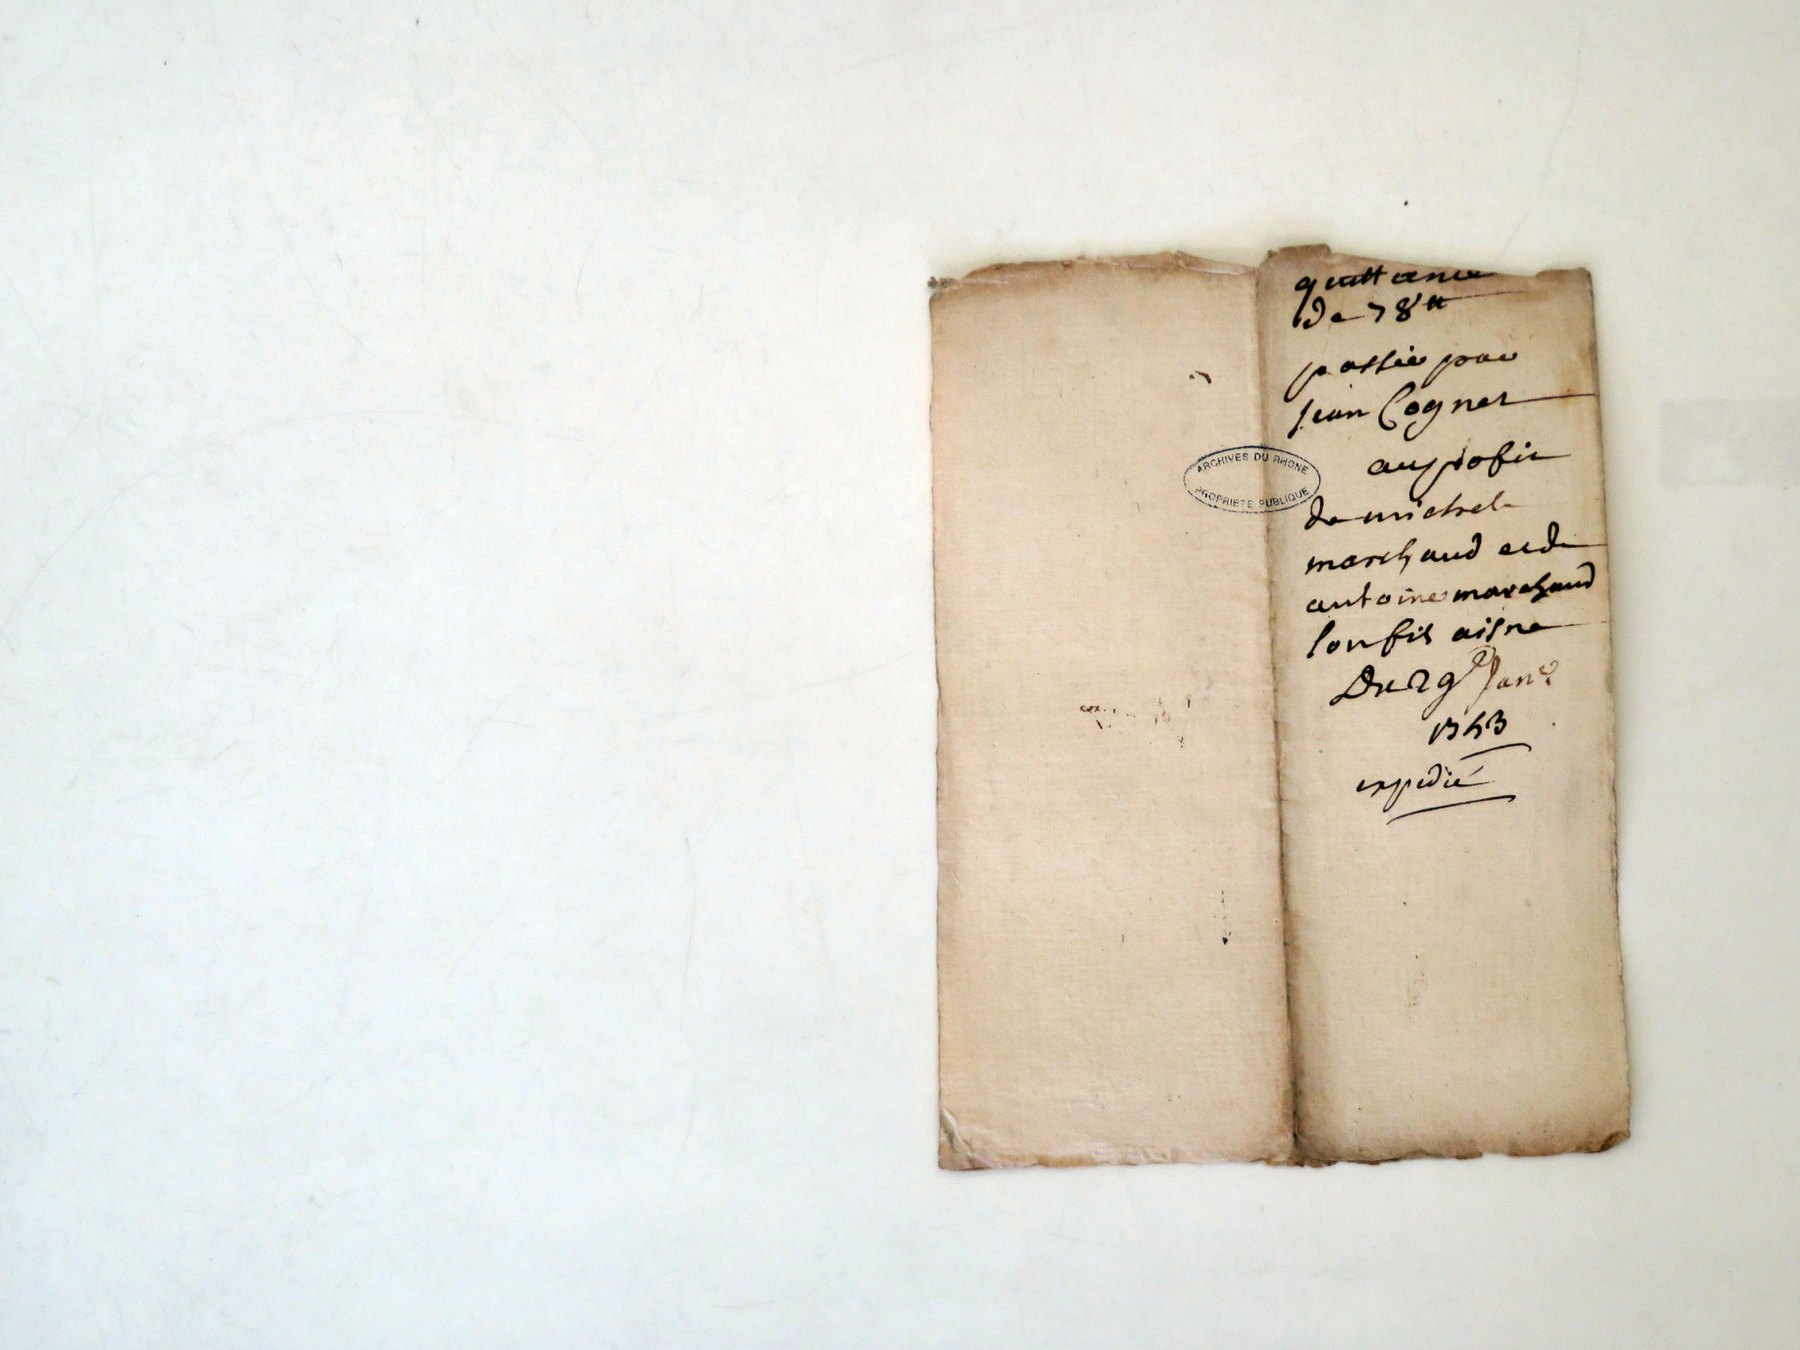 quittance
de 78ᵗᵗ
passée par
Jean Cognet
au profit
de michel
marchand et de
antoine marchand
son fils aisne
Du 29ᵉ Janᵉʳ
1743
expedié
ARCHIVES DU RHONE
PROPRIETE PUBLIQUE